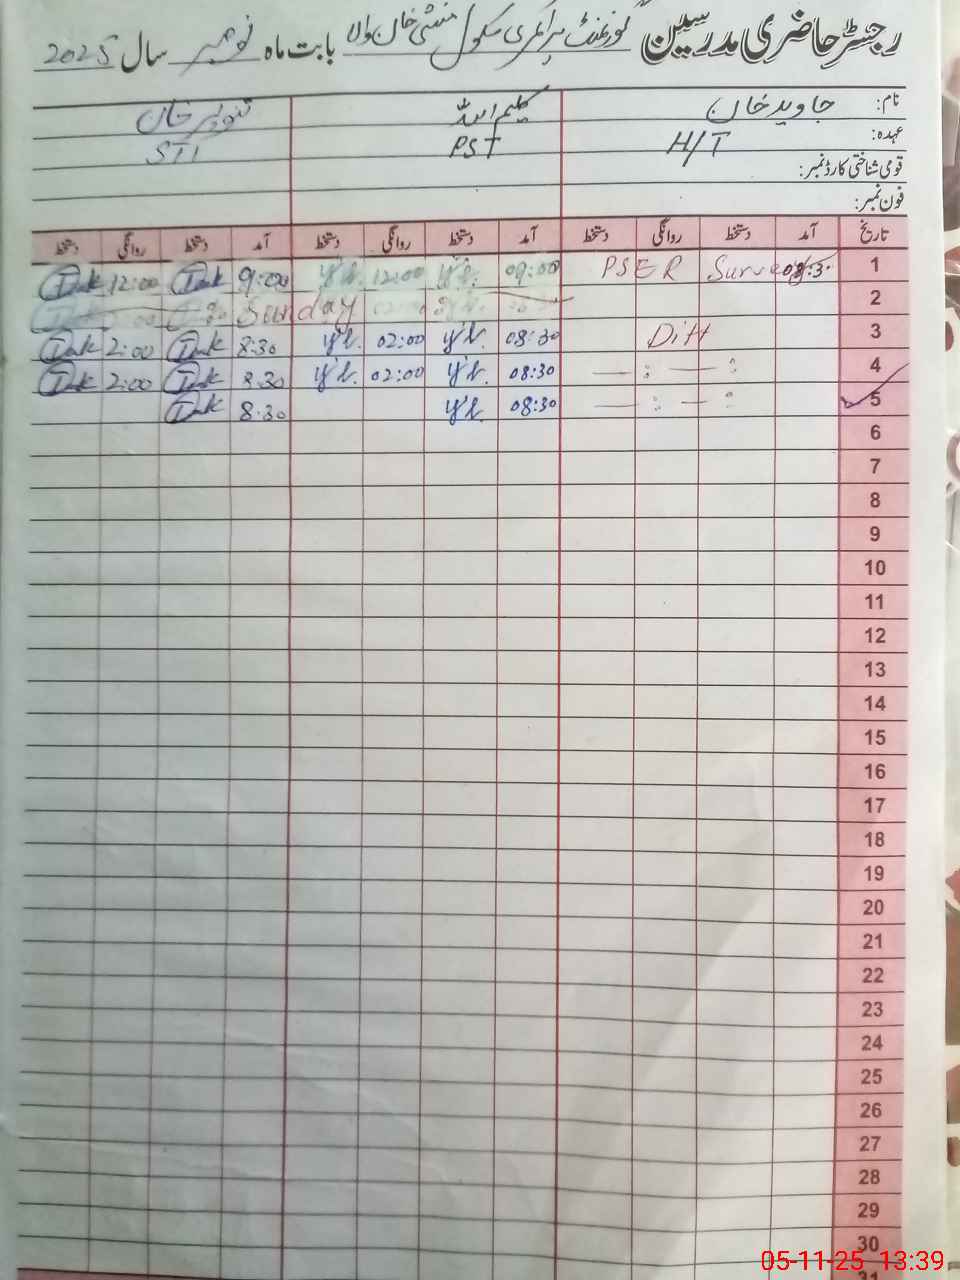 رجسٹر حاضری مدرسین گورنمنٹ پرائمری سکول منشی خان والا بابت ماہ نومبر سال 2025
نام: جاوید خان کلیم اللہ تنویر خان
عہدہ: H/T PST STI
قومی شناختی کارڈ نمبر:
فون نمبر:
تاریخ آمد دستخط روانگی دستخط آمد دستخط روانگی دستخط آمد دستخط روانگی دستخط
1 PSER Survey 09:00 12:00 9:00 12:00
2 Sunday
3 Ditt 08:30 02:00 8:30 2:00
4 — : — : 08:30 02:00 8:30 2:00
5 — : — : 08:30 8:30
6
7
8
9
10
11
12
13
14
15
16
17
18
19
20
21
22
23
24
25
26
27
28
29
30
31
05-11-25 13:39